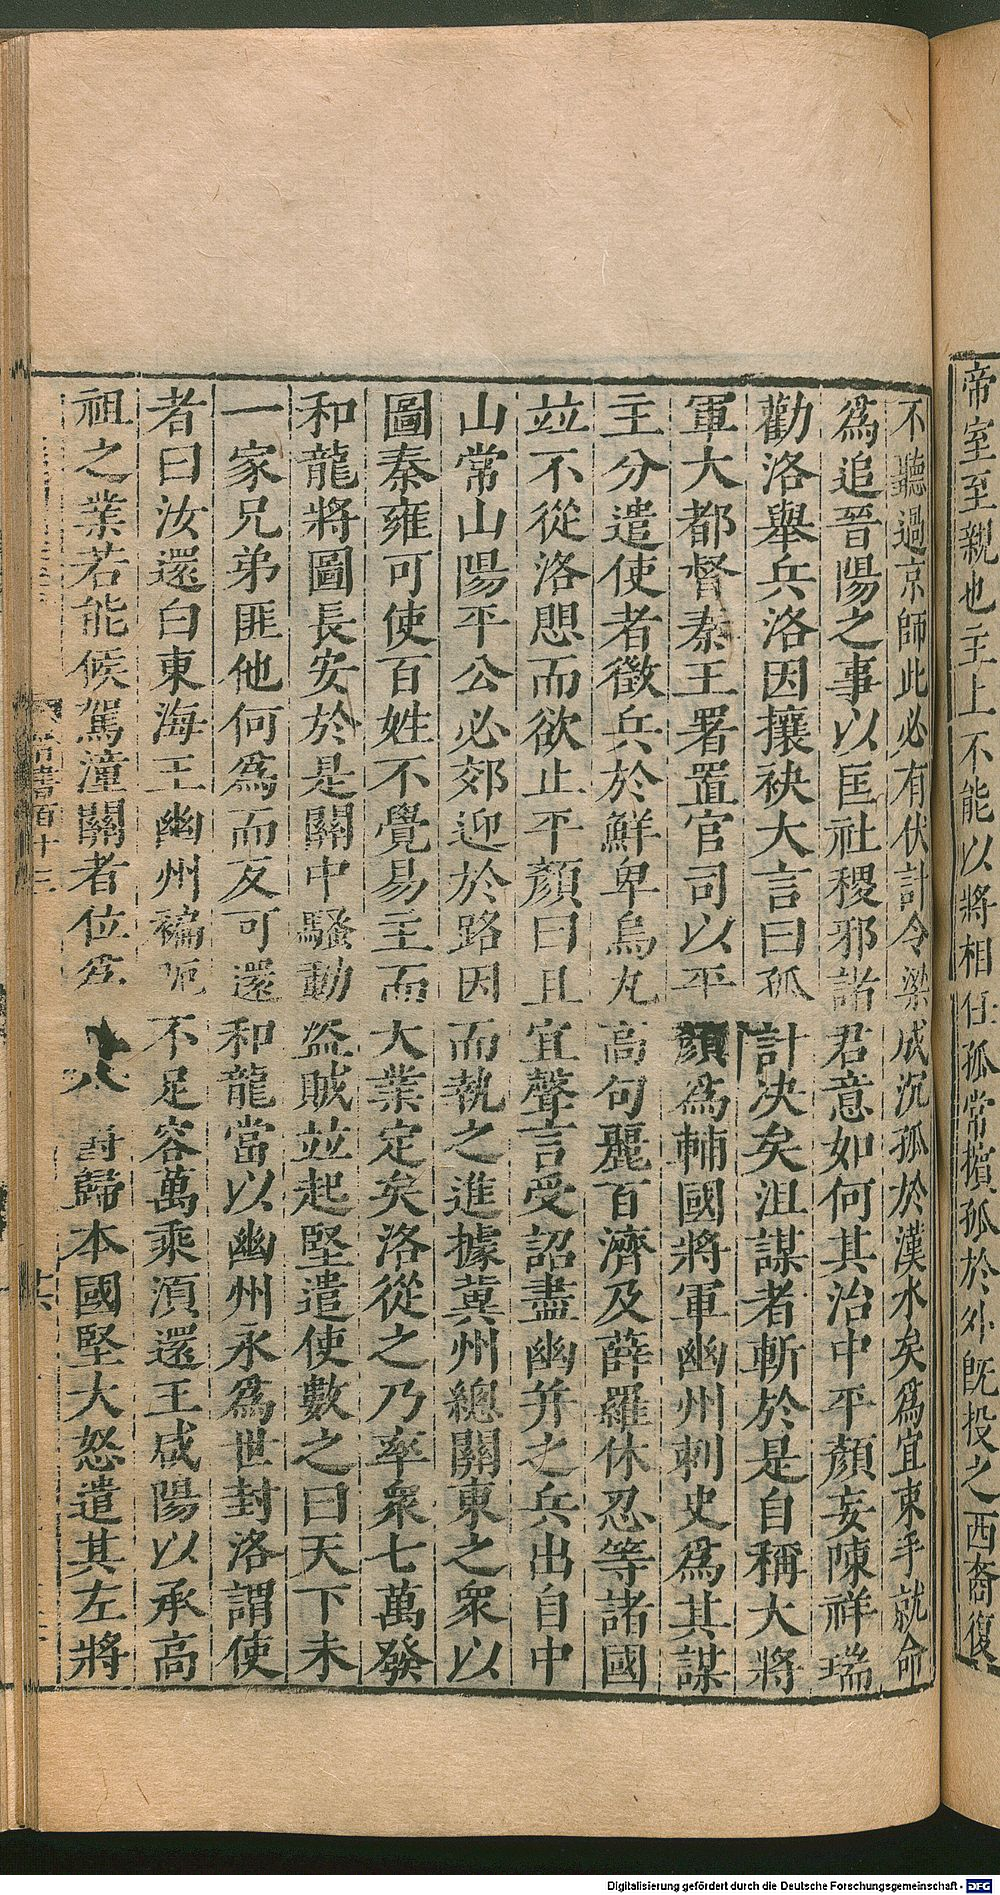 帝室至親也主上不能以將相任孤常擯孤於外旣投之西裔復
不聽過京師此必有伏計令梁成沉孤於漢水矣爲宜束手就命
爲追晉陽之事以匡社稷邪諸君意如何其治中平顏妄陳祥瑞
勸洛舉兵洛因攘袂大言曰孤計決矣沮謀者斬於是自稱大將
軍大都督秦王署置官司以平顏爲輔國將軍幽州刺史爲其謀
主分遣使者徵兵於鮮卑烏丸高句麗百濟及薛羅休忍等諸國
並不從洛懼而欲止平顏曰且宜聲言受詔盡幽并之兵出自中
山常山陽平公必郊迎於路因而執之進據冀州總關東之衆以
圖秦雍可使百姓不覺易主而大業定矣洛從之乃率衆七萬發
和龍將圖長安於是關中騷動盜賊並起堅遣使數之曰天下未
一家兄弟匪他何爲而反可還和龍當以幽州永爲世封洛謂使
者曰汝還白東海王幽州褊阨不足容萬乘湏還王咸陽以承高
祖之業若能候駕潼關者位爲爵歸本國堅大怒遣其左將
晉書百十三
Digitalisierung gefördert durch die Deutsche Forschungsgemeinschaft - DFG